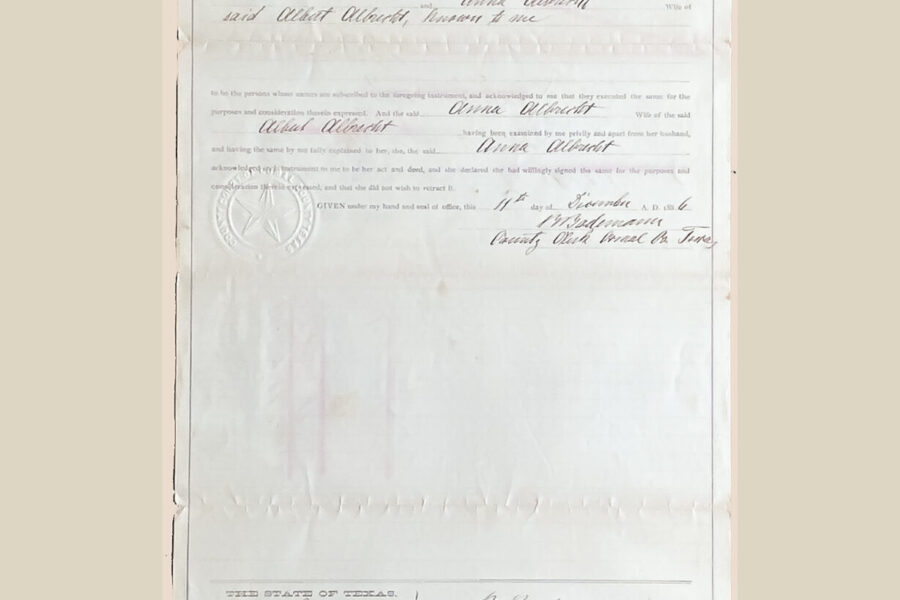 and Anna Albrecht Wife of
said Albert Albrecht, known to me
to be the persons whose names are subscribed to the foregoing instrument, and acknowledged to me that they executed the same for the
purposes and consideration therein expressed. And the said Anna Albrecht Wife of the said
Albert Albrecht having been examined by me privily and apart from her husband,
and having the same by me fully explained to her, she, the said Anna Albrecht
acknowledged such instrument to me to be her act and deed, and she declared she had willingly signed the same for the purposes and
consideration therein expressed, and that she did not wish to retract it.
GIVEN under my hand and seal of office, this day of December A. D. 188 6
County Clerk Comal Co. Texas
THE STATE OF TEXAS.